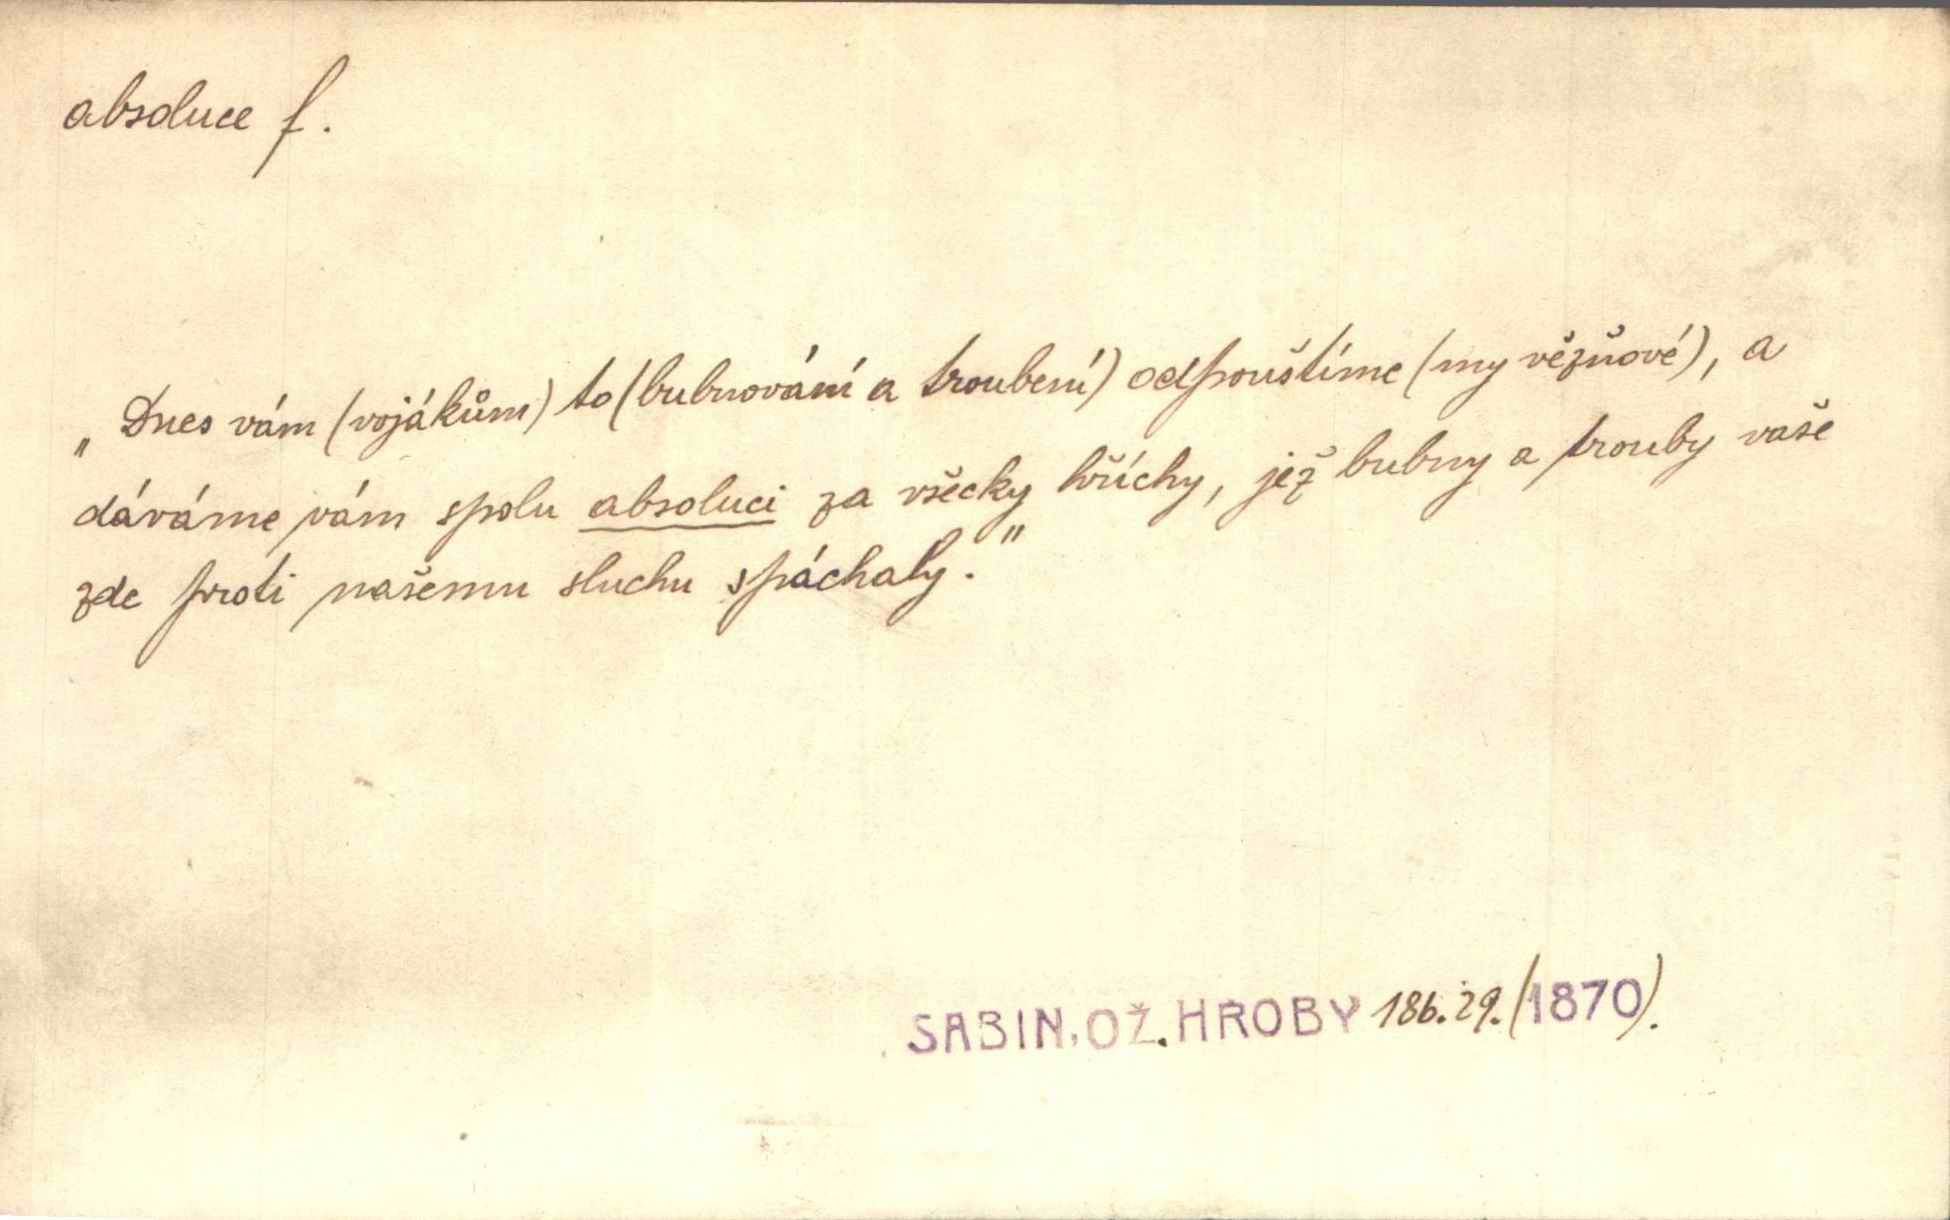 absoluce f.
„Dnes vám (vojákům) to (bubnování a troubení) odpouštíme (my vězňové), a
dáváme vám spolu absoluci za všecky hříchy, jež bubny a trouby vaše
zde proti našemu sluchu spáchaly."
SABIN, OŽ. HROBY 186.29. (1870).